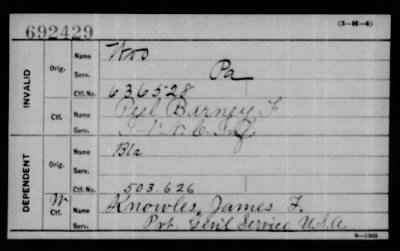 692429
(3-H-4)
INVALID
Orig.
Name
Woo
Serv.
Pa
Ctf. No.
636528
Ctf.
Name
Peel Barney F
Serv.
DEPENDENT
Orig.
Name
Bla
Serv.
Ctf. No.
503.626
W
Ctf.
Name
Knowles, James F.
Serv.
Pvt. Genl Service U.S.A.